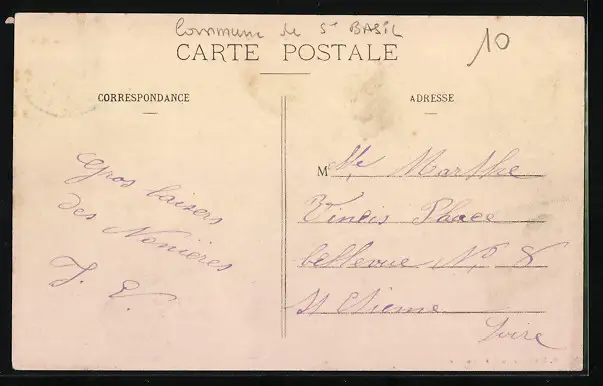 Commune de St BASIL
CARTE POSTALE
10
CORRESPONDANCE
Gros baisers
des Nonières
J. V.
ADRESSE
M Mlle Marthe
Vincis Place
bellevue No 8
St Etienne
Loire